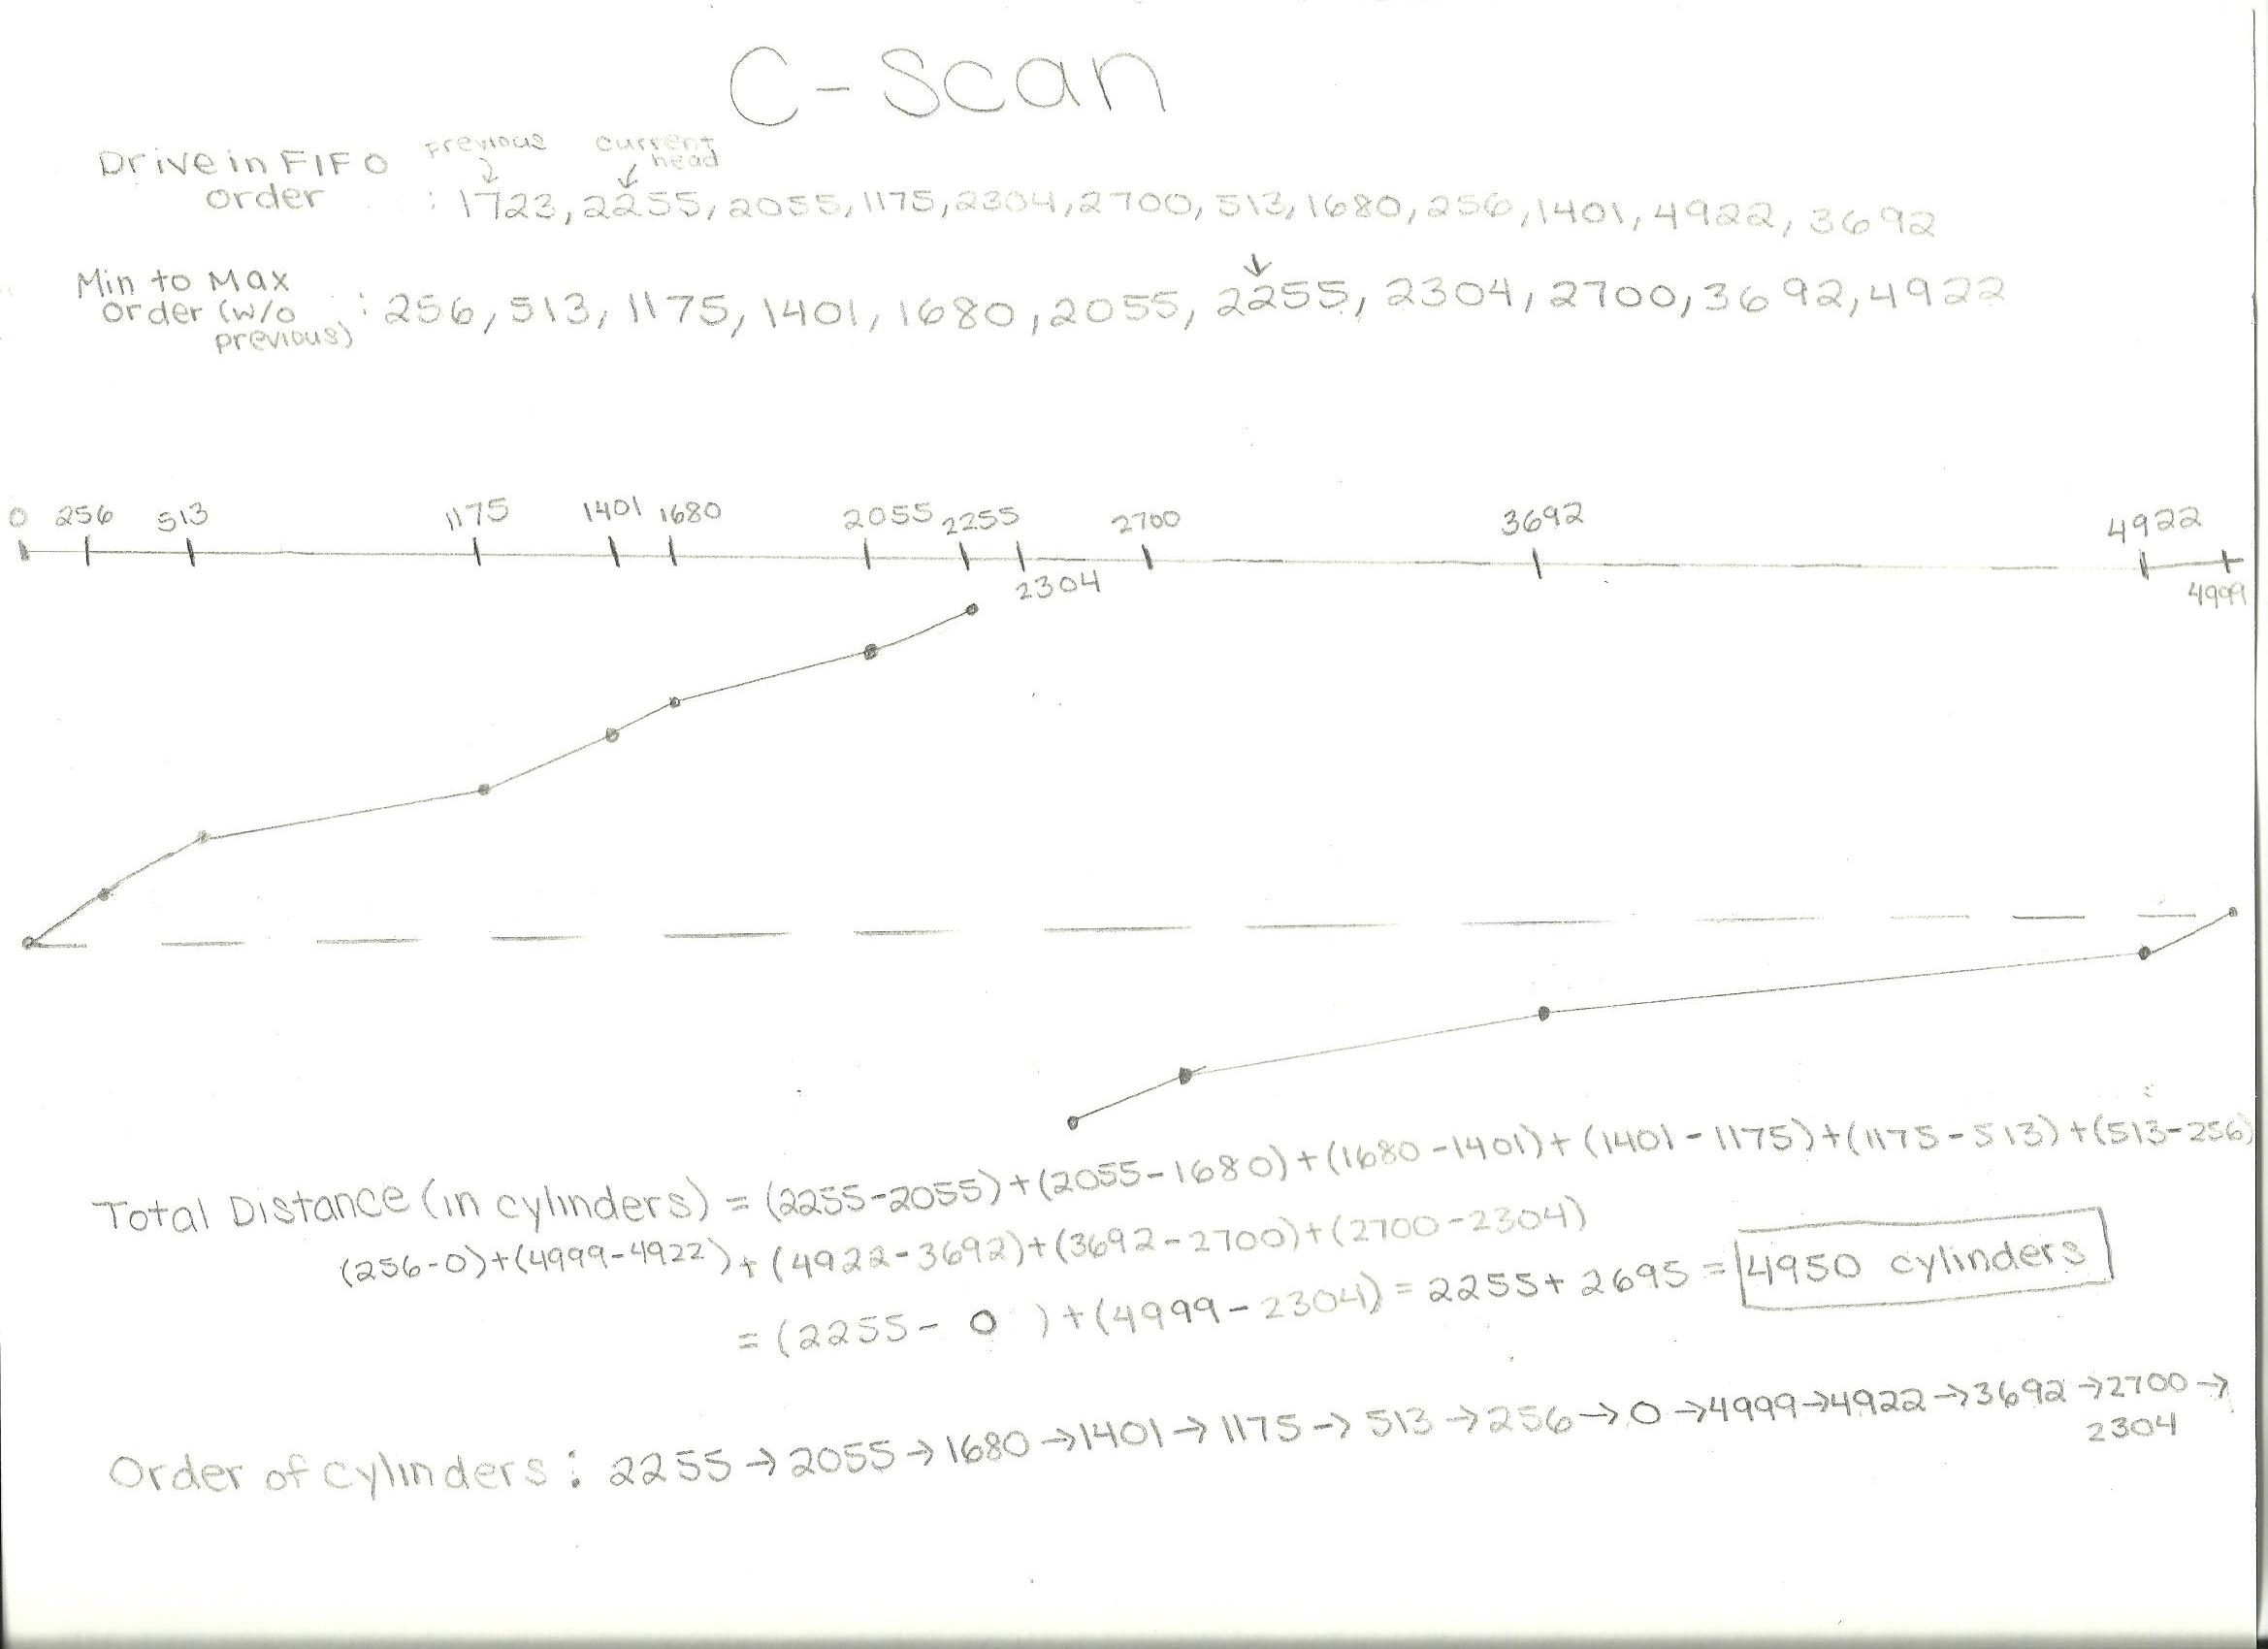 C-Scan
previous current head
Drive in FIFO order : 1723, 2255, 2055, 1175, 2304, 2700, 513, 1680, 256, 1401, 4922, 3692
Min to Max order (w/o previous) : 256, 513, 1175, 1401, 1680, 2055, 2255, 2304, 2700, 3692, 4922
0 256 513 1175 1401 1680 2055 2255 2700 3692 4922
2304 4999
Total Distance (in cylinders) = (2255-2055)+(2055-1680)+(1680-1401)+(1401-1175)+(1175-513)+(513-256)
(256-0)+(4999-4922)+(4922-3692)+(3692-2700)+(2700-2304)
=(2255- 0 )+(4999-2304) = 2255+2695 = 4950 cylinders
Order of cylinders: 2255→2055→1680→1401→1175→513→256→0→4999→4922→3692→2700→
2304